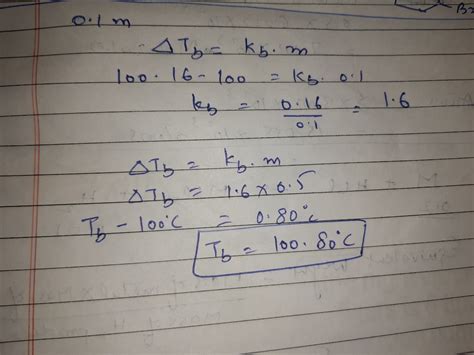 0.1 m
ΔTb = kb. m
100.16 - 100 = kb. 0.1
kb = 0.16/0.1 = 1.6
ΔTb = kb. m
ΔTb = 1.6 x 0.5
Tb - 100°C = 0.80°c
Tb = 100.80°C